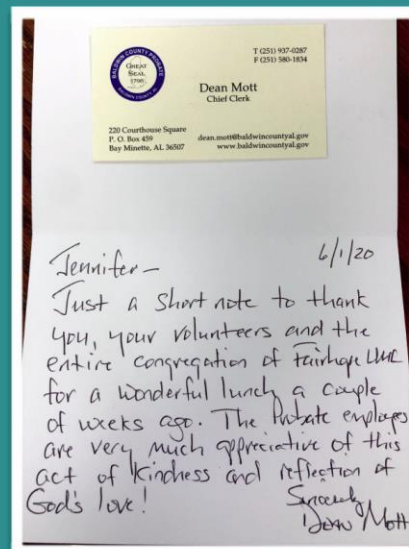 BALDWIN COUNTY PROBATE
GREAT
SEAL
T (251) 937-0287
F (251) 580-1834
Dean Mott
Chief Clerk
220 Courthouse Square
P. O. Box 459
Bay Minette, AL 36507
dean.mott@baldwincountyal.gov
www.baldwincountyal.gov
6/1/20
Jennifer-
Just a short note to thank
you, your volunteers and the
entire congregation of Fairhope UMC
for a wonderful lunch a couple
of weeks ago. The Probate employes
are very much appreciative of this
act of kindness and reflection of
God's love!
Sincerely
Dean Mott